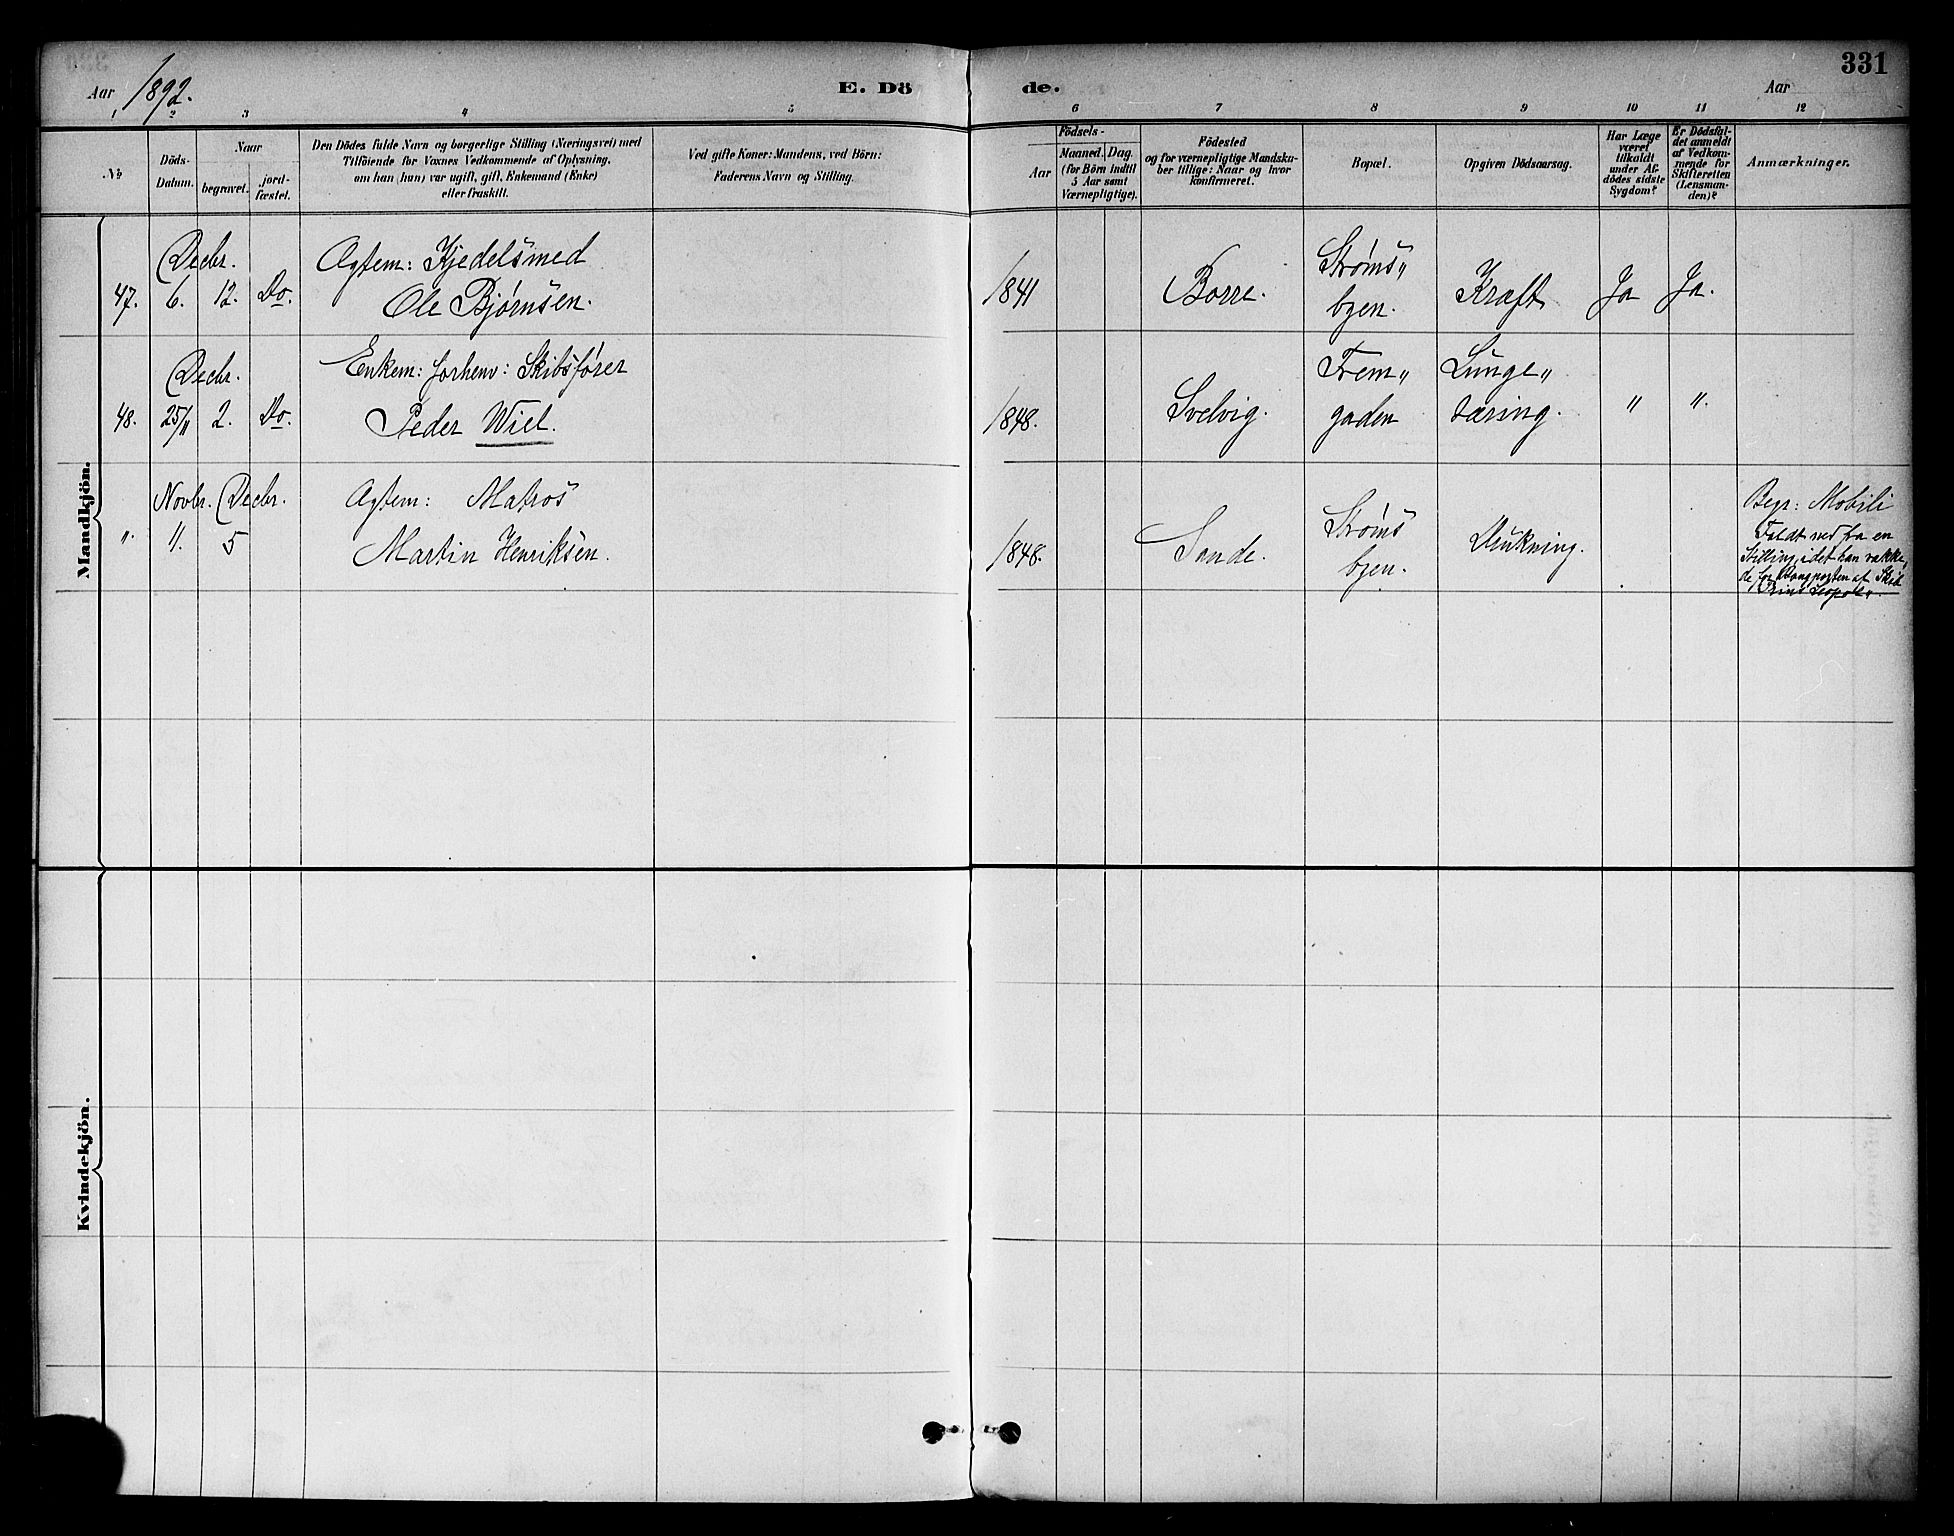 331
Aar 1892. E. Dö de. Aar
1 2 3 4 5 6 7 8 9 10 11 12
№
Döds-
Datum.
Naar
begravet.
jord-
fæstet.
Den Dödes fulde Navn og borgerlige Stilling (Næringsvei) med
Tilföiende for Voxnes Vedkommende af Oplysning,
om han (hun) var ugift, gift, Enkemand (Enke)
eller fraskilt.
Ved gifte Koner: Mandens, ved Börn:
Faderens Navn og Stilling.
Födsels-
Aar
Maaned. Dag.
(for Börn indtil
5 Aar samt
Værnepligtige).
Födested
og for værnepligtige Mandsku-
ber tillige: Naar og hvor
konfirmeret.
Bopæl.
Opgiven Dödsaarsag.
Har Læge
været
tilkaldt
under Af-
dödes sidste
Sygdom?
Er Dödsfal-
det anmeldt
af Vedkom-
mende for
Skifteretten
(Lensman-
den)?
Anmærkninger.
Mandkjön.
Decbr. Agtem: Kjedelsmed Strøms„
47. 6. 12. Do. Ole Bjørnsen. 1841 Borre. byen. Kræft Ja Ja.
Decbr. Enkem: forhenv: Skibsfører Frem„ Lunge„
48. 25/11 2. Do. Peder Wiel. 1848. Svelvig. gaden tæring. " ".
Novbr. Decbr. Agtem: Matros Strøms
". 11. 5 Martin Henriksen. 1848. Sande. byen. Drukning.
Begr: Mobili
Faldt ned fra en
Stilling, idet han vakke„
de for af Skib
Prins Leopold.
Kvindekjön.